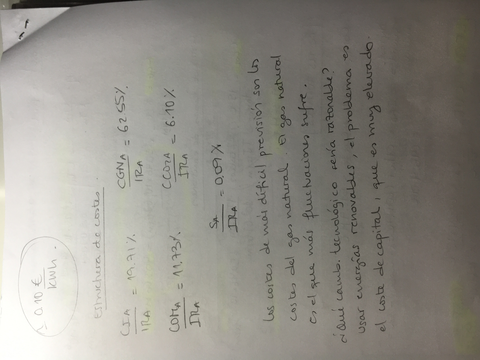 ≥ 0.10 €/kWh.
Estructura de costes
CIA/IRA = 19.71% CGNA/IRA = 62.55%
COMA/IRA = 11.73% CCO2A/IRA = 6.10%
SA/IRA = 0,09%
Los costes de más difícil previsión son los
costes del gas natural. El gas natural
es el que más fluctuaciones sufre.
¿Qué cambio tecnológico sería razonable?
usar energías renovables, el problema es
el coste de capital, que es muy elevado.